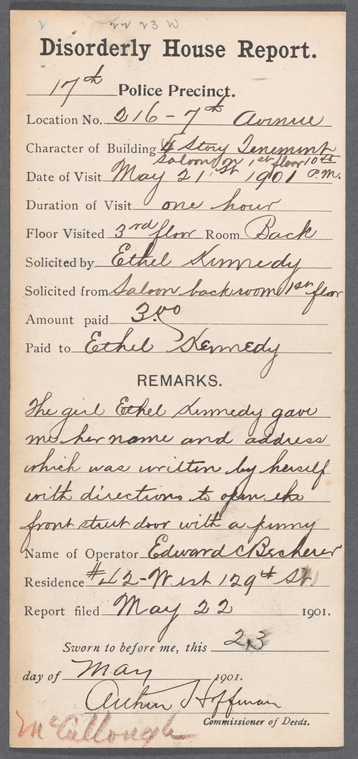 22 23 W
Disorderly House Report.
17th Police Precinct.
Location No. 216-7th Avenue
Character of Building 4 Story Tenement
Saloon on 1st floor 10 P.M.
Date of Visit May 21st 1901
Duration of Visit one hour
Floor Visited 3rd floor Room Back
Solicited by Ethel Kennedy
Solicited from Saloon back room 1st floor
Amount paid 3.00
Paid to Ethel Kennedy
REMARKS.
The girl Ethel Kennedy gave
me her name and address
which was written by herself
with directions to open the
front street door with a penny
Name of Operator Edward C Becherer
Residence #42-West 129th St.
Report filed May 22 1901.
Sworn to before me, this 23
day of May 1901.
Arthur Hoffman
Commissioner of Deeds.
McCullough